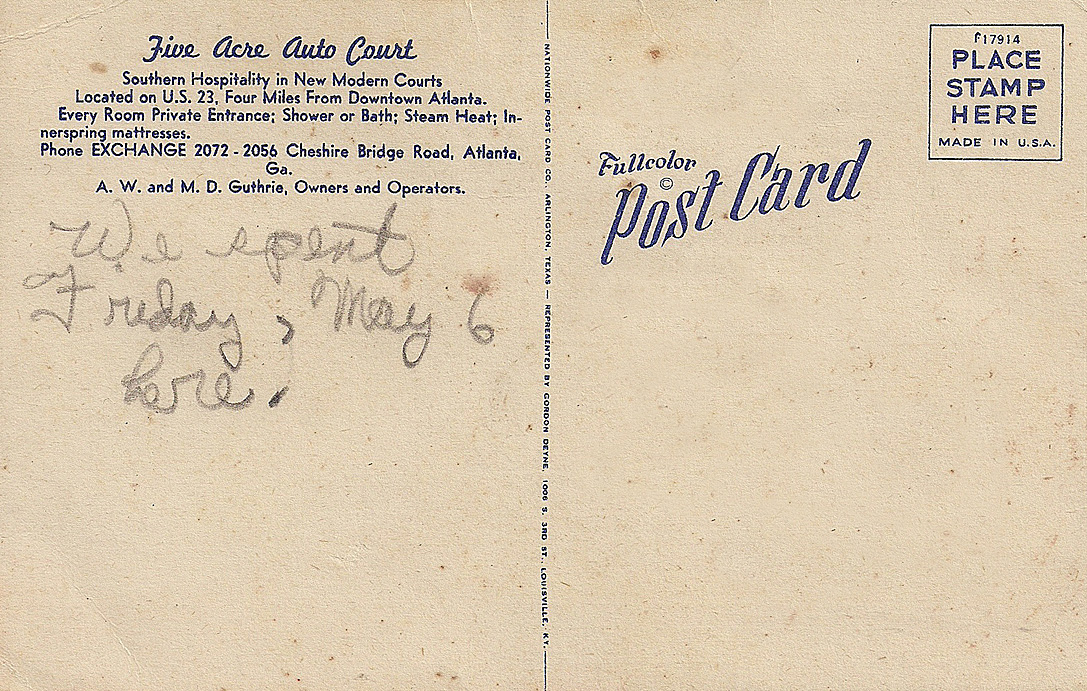 Five Acre Auto Court
Southern Hospitality in New Modern Courts
Located on U.S. 23, Four Miles From Downtown Atlanta.
Every Room Private Entrance; Shower or Bath; Steam Heat; In-
nerspring mattresses.
Phone EXCHANGE 2072 - 2056 Cheshire Bridge Road, Atlanta,
Ga.
A. W. and M. D. Guthrie, Owners and Operators.
We spent
Friday, May 6
here.
NATIONWIDE POST CARD CO., ARLINGTON, TEXAS — REPRESENTED BY GORDON DEYNE, 1006 S. 3RD ST., LOUISVILLE, KY.
Fullcolor
©
Post Card
F17914
PLACE
STAMP
HERE
MADE IN U.S.A.